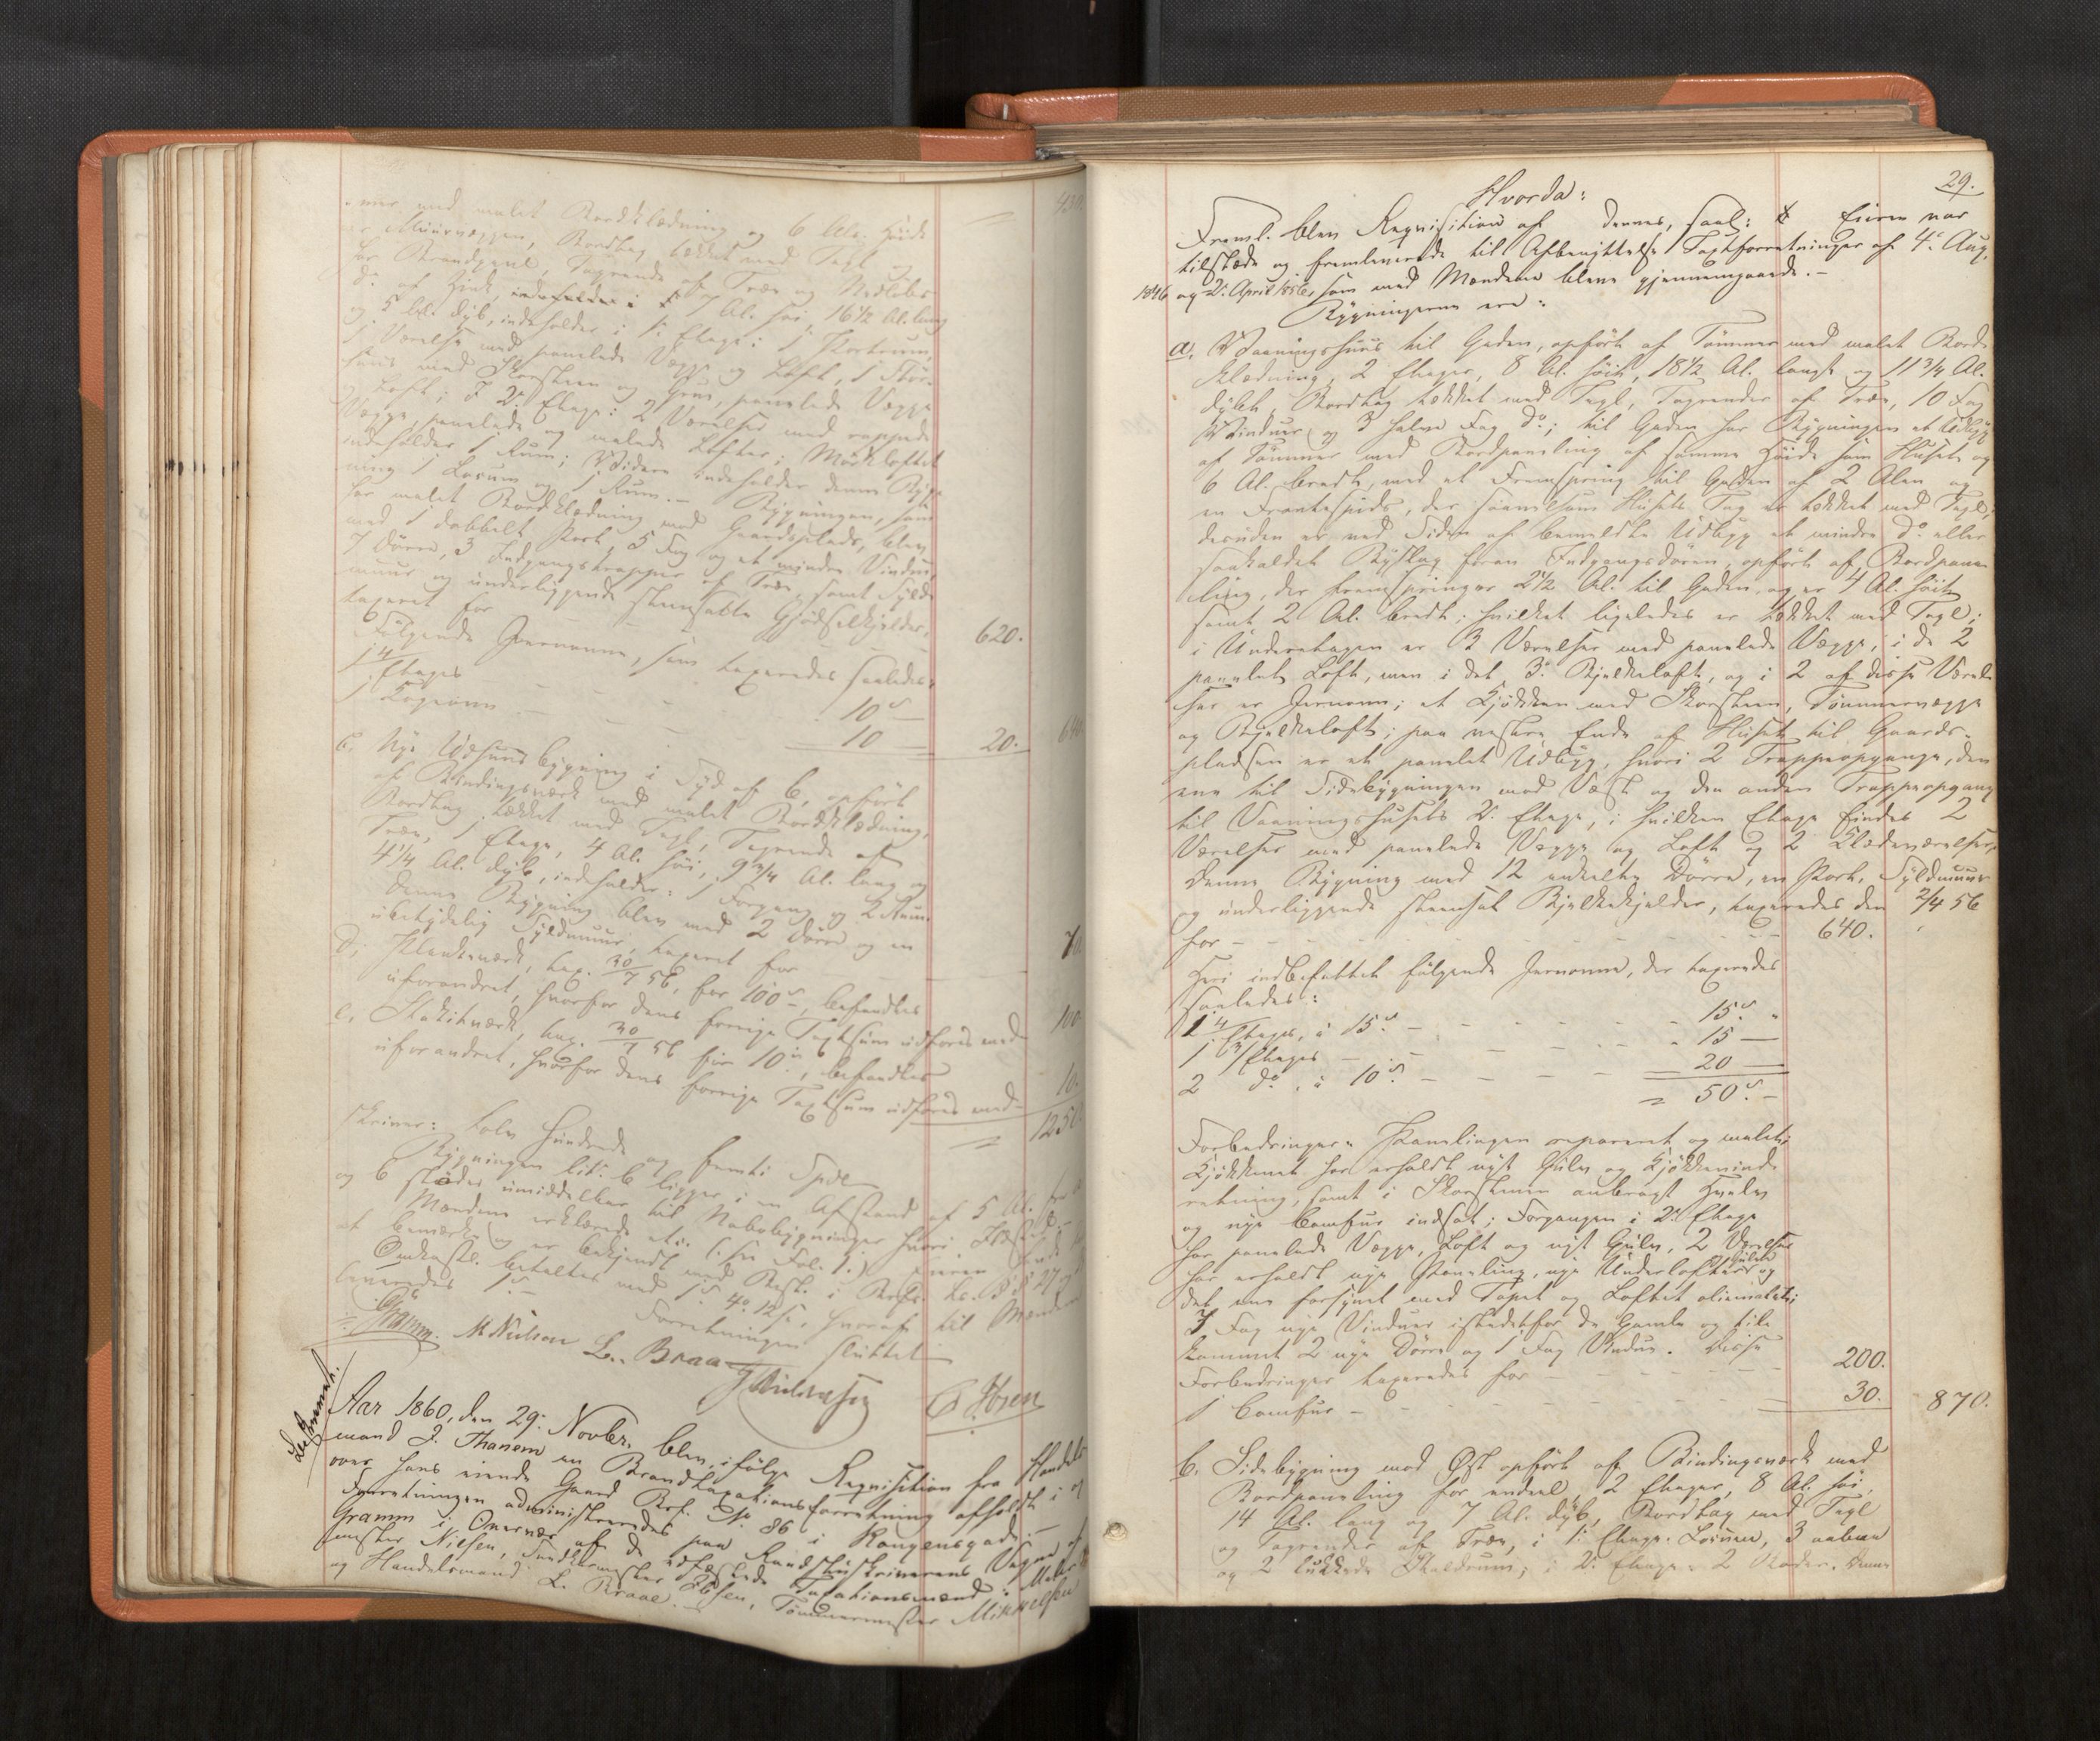 med malet Bordklædning og 6 Al. Høide
Muurvæggen, Bordtag tækket med Tagl
har Brandgavl, Tagrende af Træ og Nedløbs
do af Zink, 7 Al. høi 16 1/2 Al. lang
og 5 Al. dyb, indeholder i 1: Etage: 1 Portrum,
1 Værelse med panelede Vægge og Loft, 1
huus med Skorsteen og Gruve, panelede Vægge
og Loft; I 2: Etage: 2 Værelser med rappede
Vægge, panelede og malede Lofter; Mørkloftet
indeholder 1 Rum; Videre indeholder denne Byg-
ning 1 Locum og 1 Rum.- Bygningen, som
har malet Bordklædning mod Gaardsplads, blev
med 1 dobbelt Port, 5 Fag og et mindre Vindue,
7 Dørre, 3 Indgangstrapper af Træ, samt Syld-
muur og underliggende steensatte Gjødselkjelder,
taxeret for 620.
Følgende Jernovne, som taxeredes saaledes:
1 4 Etages - - - 10 -
1 Kogeovn - - - 10 20. 640.
c. Nye Udhuusbygning i Syd af b, opført
af Bindingsværk med malet Bordklædning,
Bordtag tækket med Tagl, Tagrende af
Træ, 1 Etage, 4 Al. høi, 9 3/4 Al. lang og
4 1/4 Al. dyb, indeholder: 1 Forgang og 2 Rum.
Denne Bygning blev med 2 Dørre og en
ubetydelig Syldmuur, taxeret for
d, Plankeværk, tax. 30/7 56, for 100, befandtes
uforandret, hvorfor dens forrige Taxtsum udføres med 100
e, Stakitværk, tax. 30/7 56 for 10, befandtes
uforandret, hvorfor dens forrige Taxtsum udføres med 10.
skriver: Tolv Hundrede og femti Spdlr 1250
Bygningen litr. b ligger i en Afstand af 5 Al. fra
og 6 støder umiddelbar til Nabobygninger hvori
Mændene erklærede etc. (: see Fol. 1:) Eieren havde
at bemærke og er bekjendt med Besk. i Brfl.
Omkostn. betaltes med 1 4 12, hvoraf til Mændene
leveredes 1 - Forretningen sluttet
Gramm. M Nielsen L. Braa J Mikkelsen E Ibsen
Aar 1860, den 29: Novbr. blev, ifølge Requisition fra Handels-
mand J. Thanem en Brandtaxationsforretning afholdt i og
over hans eiende Gaard Brf. No 86 i Kongensgade.-
Forretningen administreredes paa Raadstueskriverens Vegne af
Gramm i Overvær af de edfæstede Taxationsmænd: Maler-
mester Nielsen, Snedkermester Ibsen, Tømmermester Mikkelsen
og Handelsmand L. Braae.
29.
Hvorda:
Freml. blev Requisition af Dennes, saal: Eieren var
tilstede og fremleverede til Afbenyttelse Taxtforretninger af 4: Aug.
1846 og 2: April 1856, som med Mændene bleve gjennemgaaede.-
Bygningerne ere:
a, Vaaningshuus til Gaden, opført af Tømmer med malet Bord-
klædning, 2 Etager, 8 Al. høit, 18 1/2 Al. langt og 11 3/4 Al.
dybt, Bordtag tækket med Tagl, Tagrender af Træ, 10 Fag
Vinduer og 3 halve Fag do; til Gaden har Bygningen et Udbyg
af Tømmer med Bordpaneling af samme Høide som Huset og
6 Al. bredt, med et Fremspring til Gaden af 2 Alen og
en Frontespids, der saavelsom Husets Tag er tækket med Tagl;
desuden er ved Siden af bemeldte Udbyg et mindre do eller
saakaldet Bislag foran Indgangsdøren, opført af Bordpane-
ling, der fremspringer 2 1/2 Al. til Gaden, og er 4 Al. høit
samt 2 Al. bredt; hvilket ligeledes er tækket med Tagl;
i Underetagen er 3 Værelser med panelede Vægge, i de 2
panelet Loft, men i det 3: Bjelkeloft, og i 2 af disse Værel-
ser er Jernovne; et Kjøkken med Skorsteen, Tømmervægge
og Bjelkeloft; paa vestre Ende af Huset til Gaards-
pladsen er et panelet Udbyg, hvori 2 Trappeopgange, den
ene til Sidebygningen mod Vest og den anden Trappeopgang
til Vaaningshusets 2: Etage, i hvilken Etage findes 2
Værelser med panelede Vægge og Loft og 2 Klædeværelser;
Denne Bygning med 12 enkelte Dørre, en Port, Syldmuur
og underliggende steensat Bjelkekjelder, taxeredes den 2/4 56
for - - - - 640.
Heri indbefattet følgende Jernovne, der taxeredes
saaledes:
1 4 Etages, à 15 - - - 15
1 3 Etages - - - 15 -
2 do, à 10 - - - 20 -
= 50 -
Forbedringer: Panelingen repareret og malet;
Kjøkkenet har erholdt nyt Gulv og Kjøkkeninde-
retning, samt i Skorstenen anbragt Hvelv
og nye Comfur indsat; Forgangen i 2: Etage
har panelede Vægge, Loft og nyt Gulv, 2 Værelser
har erholdt nye Paneling, nye Underlofter, Gulve og
det ene forsynet med Tapet og Loftet oliemalet;
7 Fag nye Vinduer istedetfor de Gamle og tile
kommet 2 nye Dørre og 1 Fag Vindue. Disse
Forbedringer taxeredes for - - - 200.
1 Comfur - - - 30. 870.
b. Sidebygning mod Øst opført af Bindingsværk med
Bordpaneling for endeel, 2 Etager, 8 Al. høi,
14 Al. lang og 7 Al. dyb, Bordtag med Tagl
og Tagrender af Træ, i 1: Etage: Locum, 3 aabne
og 2 lukkede Skeldrum; i 2: Etage: 2 Boder. Denne